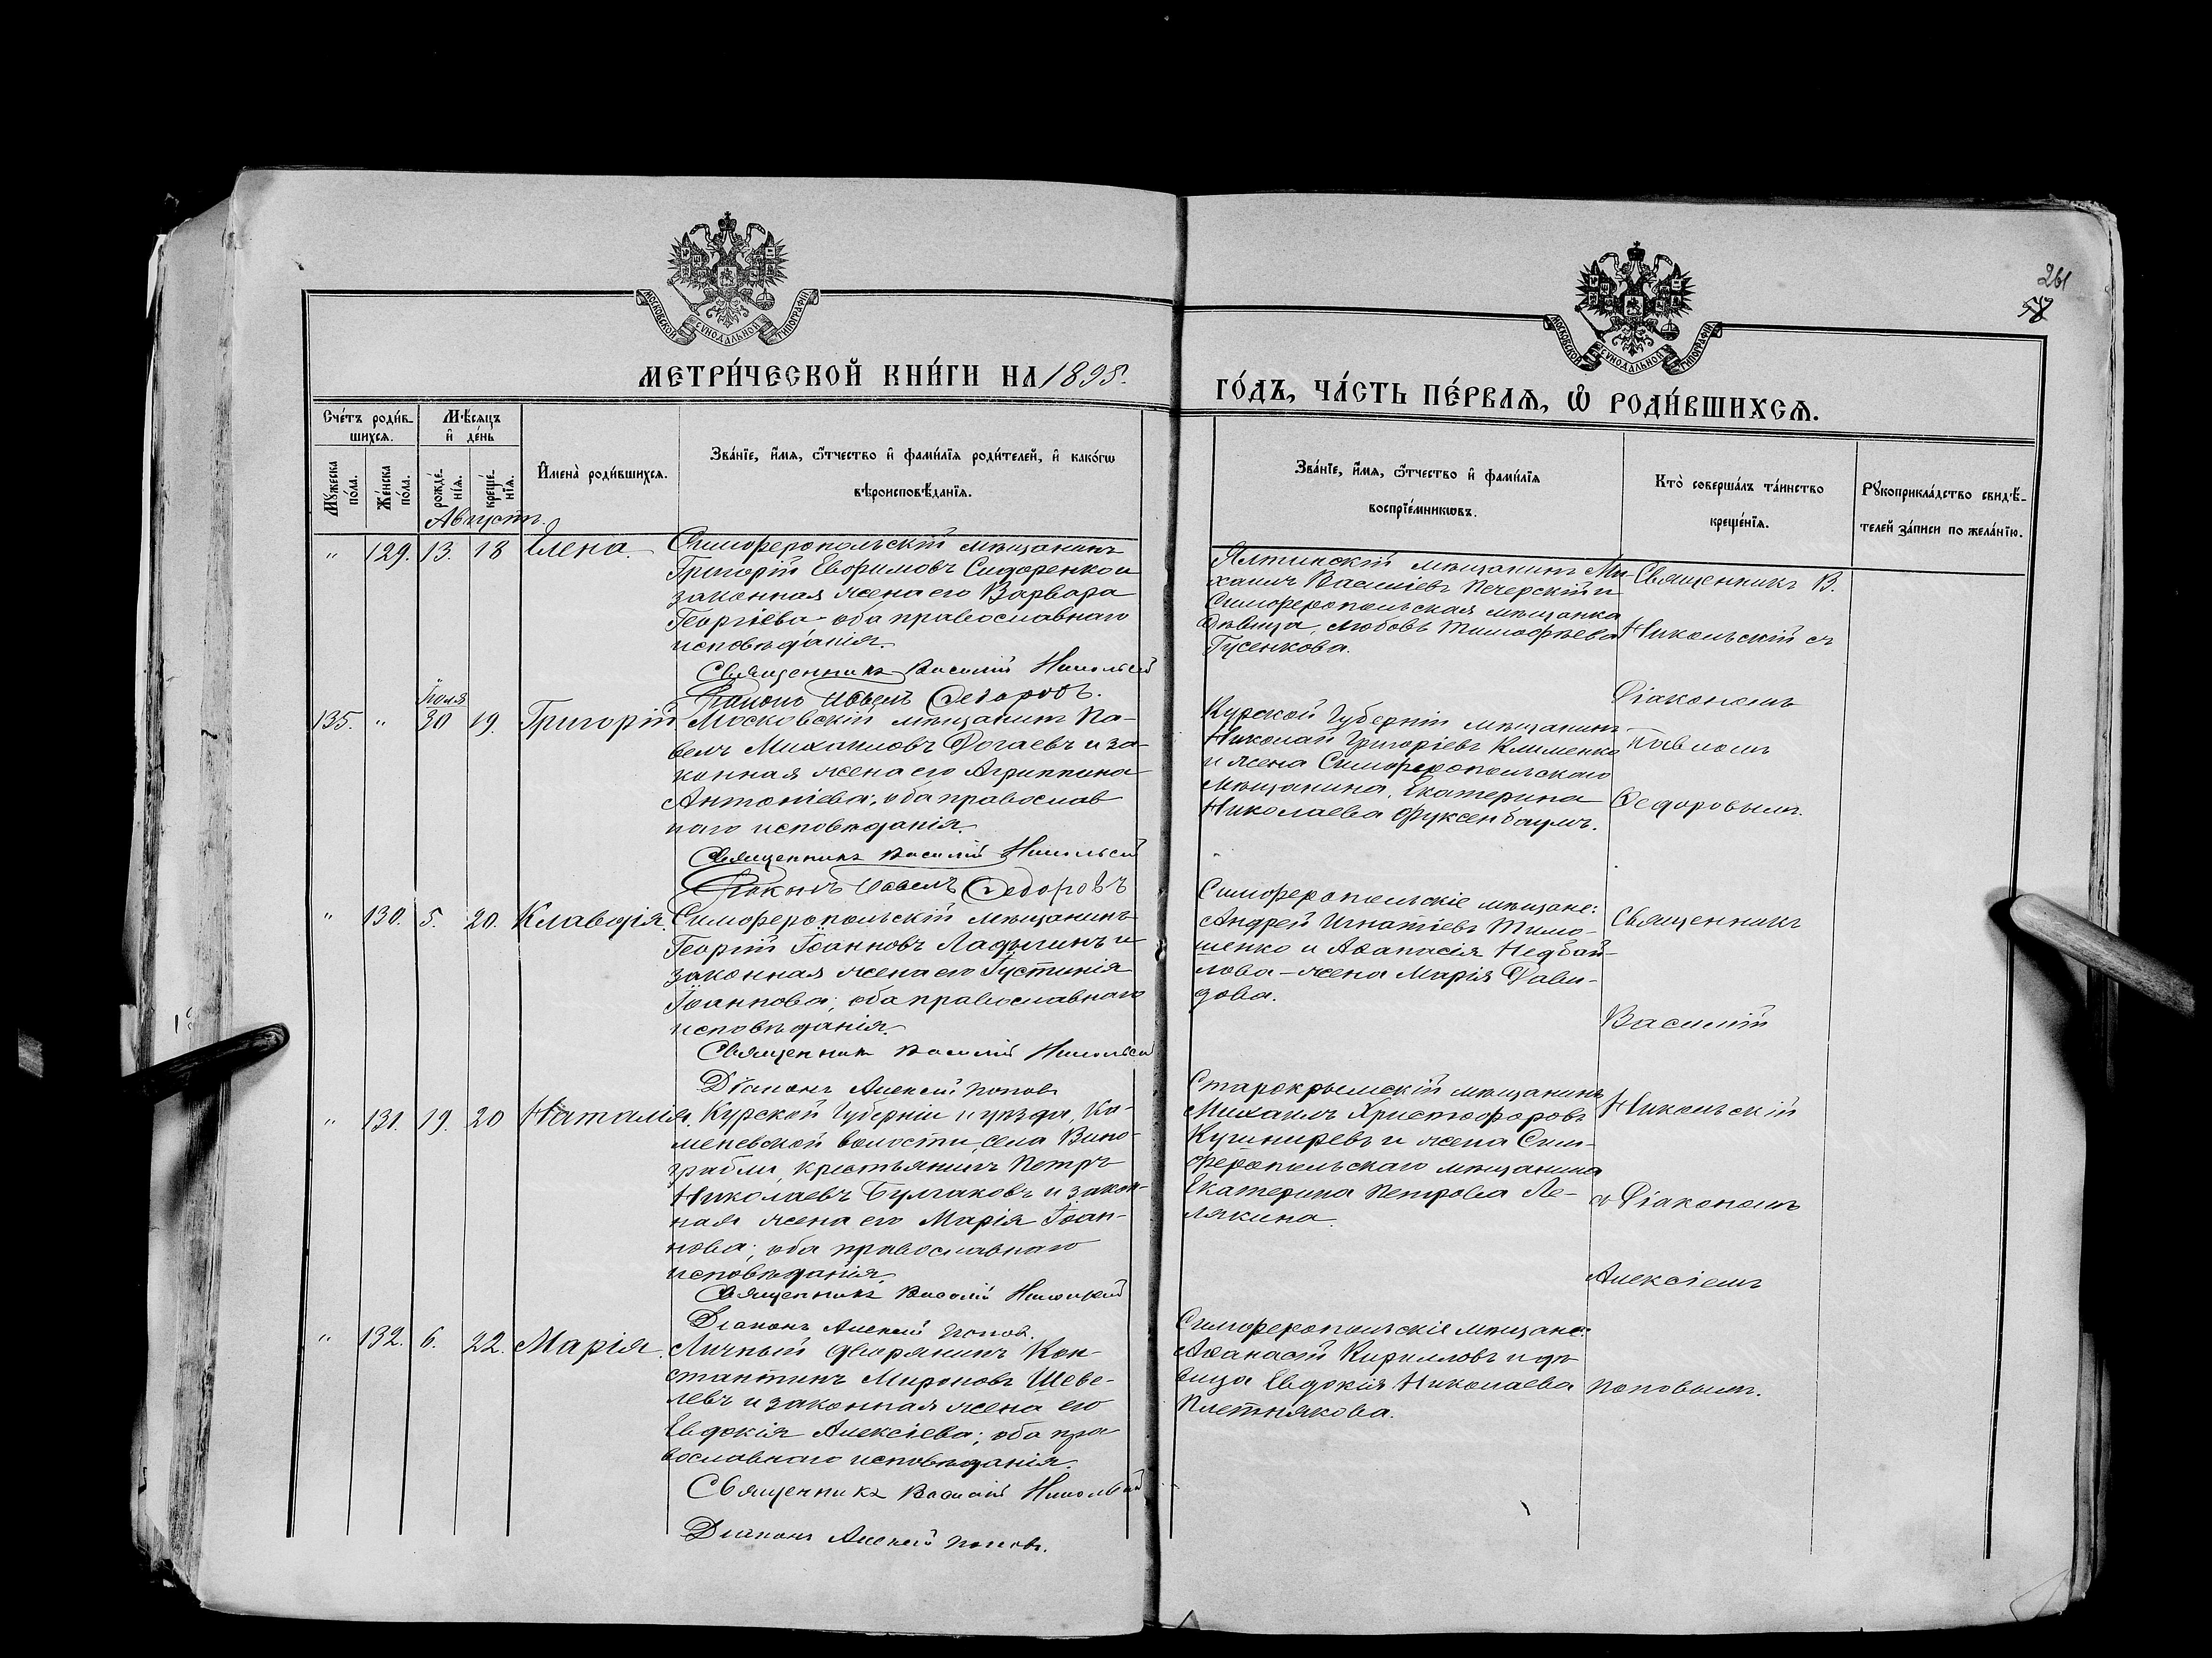 261
58
МОСКОВСКОЙ СѴНОДАЛЬНОЙ ТИПОГРАФІИ
МОСКОВСКОЙ СѴНОДАЛЬНОЙ ТИПОГРАФІИ
МЕТРИ́ЧЕСКОЙ КНИ́ГИ НА 1895.
ГО́ДЪ, ЧА́СТЬ ПЕ́РВАѦ, Ѽ РОДИ́ВШИХСѦ.
Сче́тъ роди́в-
шихсѧ.
Мѣ́сѧцъ
и҆ де́нь
Мꙋ́жеска
по́ла.
Же́нска
по́ла.
рожде́-
нїѧ.
креще́-
нїѧ.
И҆мена̀ роди́вшихсѧ.
Зва́нїе, и҆́мѧ, ѻ҆́тчество и҆ фами́лїѧ роди́телей, и҆ како́гѡ
вѣроисповѣ́данїѧ.
Зва́нїе, и҆́мѧ, ѻ҆́тчество и҆ фами́лїѧ
воспрїе́мникѡвъ.
Кто̀ соверша́лъ та́инство
креще́нїѧ.
Рꙋкоприкла́дство свидѣ́-
телей за́писи по жела́нїю.
Августъ.
" 129. 13. 18 Елена.
Симферопольскій мѣщанинъ
Григорій Евфимовъ Сидоренко и
законная жена его Варвара
Георгіева оба православнаго
исповѣданія.
Священникъ Василій Никольскій
Діаконъ Павелъ Ѳедоровъ.
Ялтинскій мѣщанинъ Ми-
хаилъ Василіевъ Печерскій и
Симферопольская мѣщанка
дѣвица, Любовь Тимофѣева
Гусенкова.
Священникъ В.
Никольскій съ
Діакономъ
Павломъ
Ѳедоровымъ.
Іюля
135. " 30 19. Григорій
Московскій мѣщанинъ Па-
велъ Михаиловъ Догаевъ и за-
конная жена его Агриппина
Антоніева; оба православ
наго исповѣданія.
Священникъ Василій Никольскій
Діаконъ Павелъ Ѳедоровъ
Курской Губерніи мѣщанинъ
Николай Григоріевъ Клименко
и жена Симферопольскаго
мѣщанина, Екатерина
Николаева Фуксенбаумъ.
" 130. 5. 20. Клавдія.
Симферопольскій мѣщанинъ
Георгій Іоанновъ Ладыгинъ и
законная жена его Іустинія
Іоаннова; оба православнаго
исповѣданія.
Священникъ Василій Никольскій
Діаконъ Алексій Поповъ
Симферопольскіе мѣщане:
Андрей Игнатіевъ Тимо-
шенко и Аѳанасія Недбай-
лова – жена Марія Дави-
дова.
Священникъ
Василій
Никольскій
съ Діакономъ
Алексіемъ
Поповымъ.
" 131. 19. 20 Наталія.
Курской Губерніи и уѣзда, Ка-
меневской волости, села Вино-
грабли, крестьянинъ Петръ
Николаевъ Булгаковъ и закон-
ная жена его Марія Іоан-
нова; оба православнаго
исповѣданія.
Священникъ Василій Никольскій
Діаконъ Алексій Поповъ.
Старокрымскій мѣщанинъ
Михаилъ Христофоровъ
Кушниревъ и жена Сим-
феропольскаго мѣщанина
Екатерина Петрова Ле-
лякина.
" 132. 6. 22. Марія.
Личный дворянинъ Кон-
стантинъ Мироновъ Шеве-
левъ и законная жена его
Евдокія Алексіева; оба пра
вославнаго исповѣданія.
Священникъ Василій Никольскій
Діаконъ Алексій Поповъ.
Симферопольскіе мѣщане:
Аѳанасій Кирилловъ и дѣ-
вица Евдокія Николаева
Плетнякова.